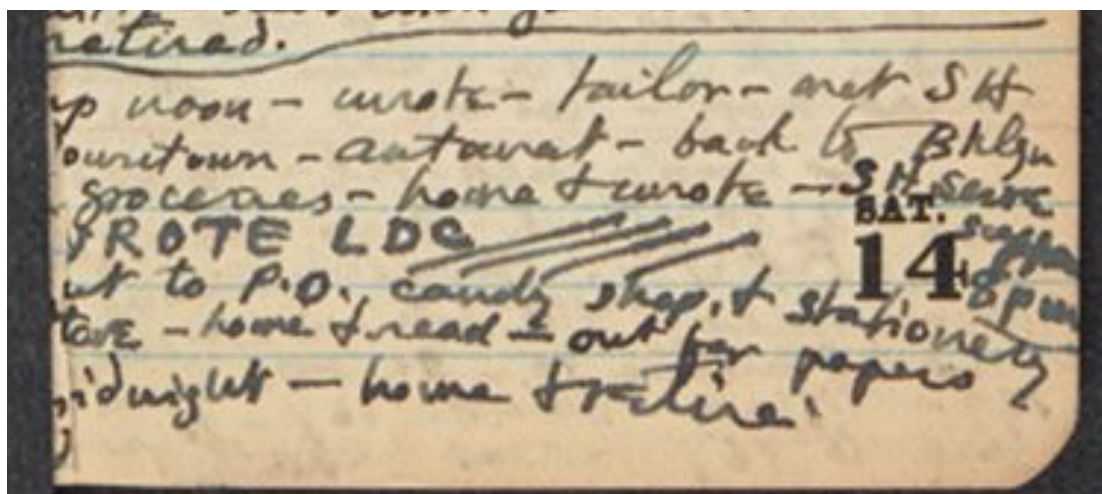 retired.
up noon – wrote – tailor – met SH
downtown – automat – back to Bklyn
groceries – home & wrote – SH serve
SAT.
WROTE LDC
supper
14
8 pm
out to P.O., candy shop, & stationery
store – home & read – out for papers
midnight – home & retire.